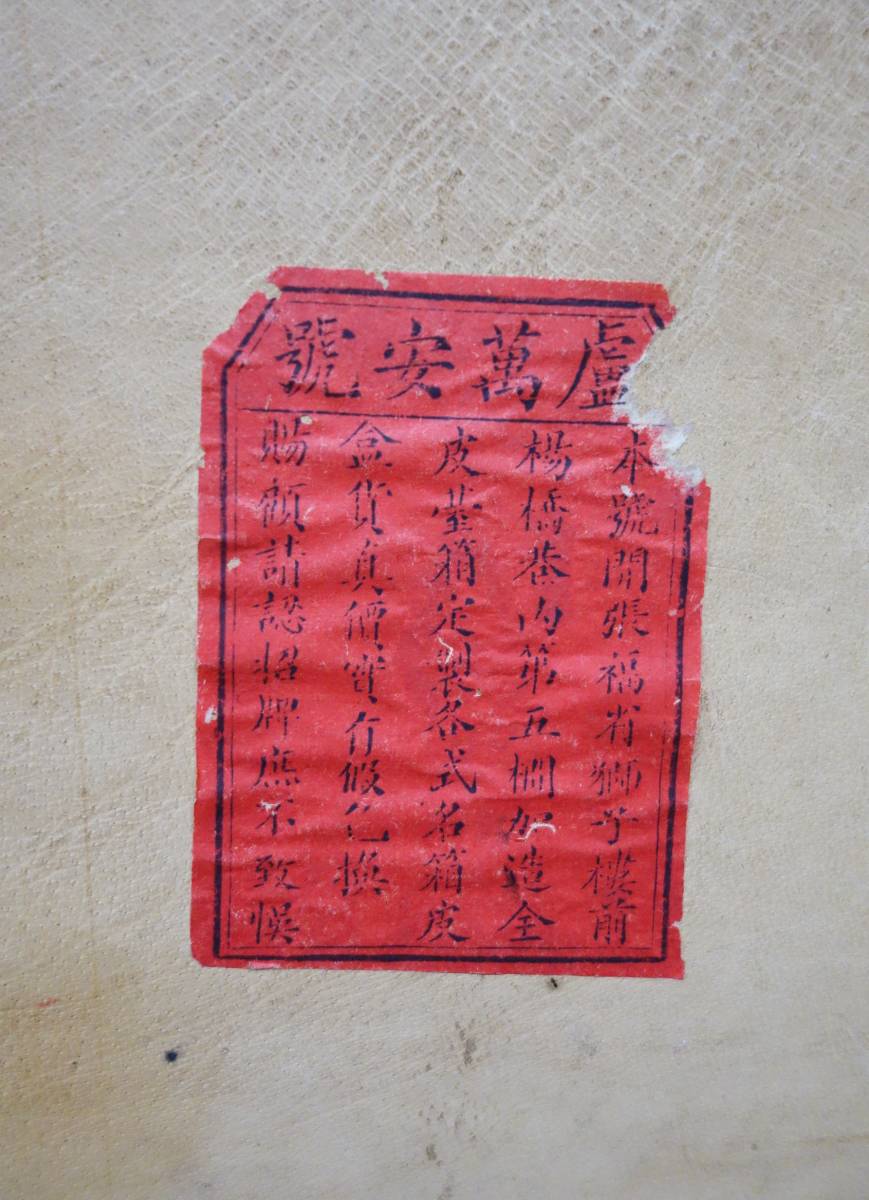 盧萬安號
本號開張福省獅子樓前
楊橋巷內第五加造全
皮箱定製各式名箱皮
盒貨真價實有假撰
賜顧請認招牌庶不致悞